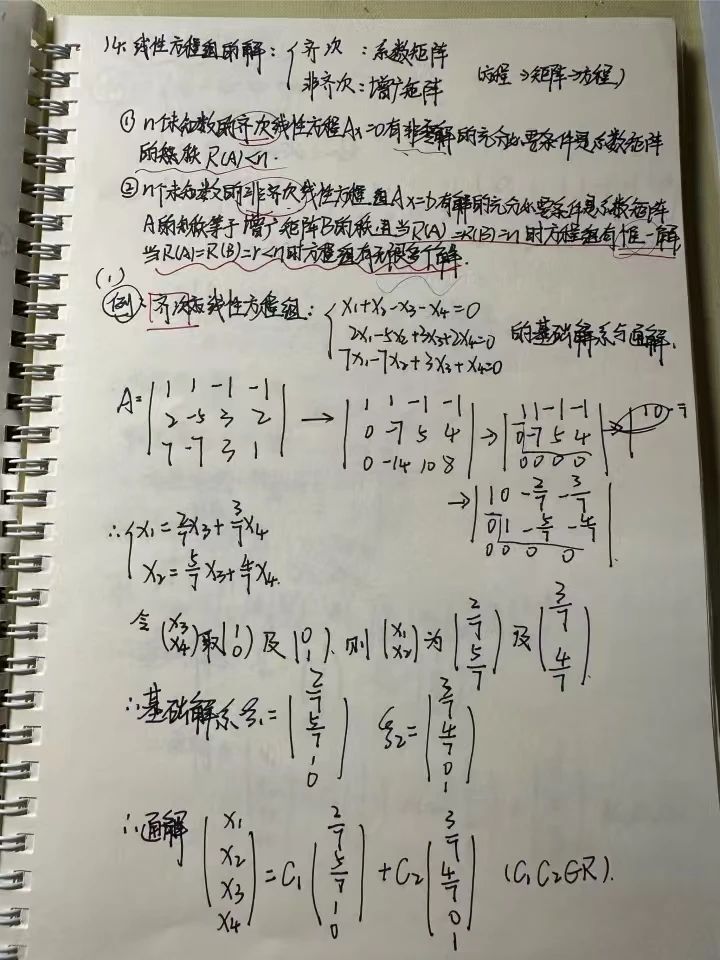 14. 线性方程组的解: { 齐次 : 系数矩阵
非齐次: 增广矩阵 (方程→矩阵→方程)
① n个未知数的齐次线性方程Ax=0有非零解的充分必要条件是系数矩阵
的秩 R(A)<n.
② n个未知数的非齐次线性方程组Ax=b有解的充分必要条件是系数矩阵
A的秩等于增广矩阵B的秩,且当R(A)=R(B)=n时方程组有惟一解,
当R(A)=R(B)=r<n时方程组有无限多个解.
(1)
例: 齐次线性方程组: { x1+x2-x3-x4=0
2x1-5x2+3x3+2x4=0 的基础解系与通解.
7x1-7x2+3x3+x4=0
A= | 1 1 -1 -1 | → | 1 1 -1 -1 | → | 1 1 -1 -1 | → | 1 0 -
| 2 -5 3 2 | | 0 -7 5 4 | | 0 -7 5 4 |
| 7 -7 3 1 | | 0 -14 10 8 | | 0 0 0 0 |
→ | 1 0 -2/7 -3/7 |
| 0 1 -5/7 -4/7 |
| 0 0 0 0 |
∴ { x1=2/7x3+3/7x4
x2=5/7x3+4/7x4.
令 (x3 x4) 取 (1 0) 及 (0 1), 则 (x1 x2) 为 (2/7 5/7) 及 (3/7 4/7).
∴基础解系 ξ1= (2/7 5/7 1 0) ξ2= (3/7 4/7 0 1)
∴通解 (x1 x2 x3 x4) =C1 (2/7 5/7 1 0) +C2 (3/7 4/7 0 1) (C1 C2∈R).